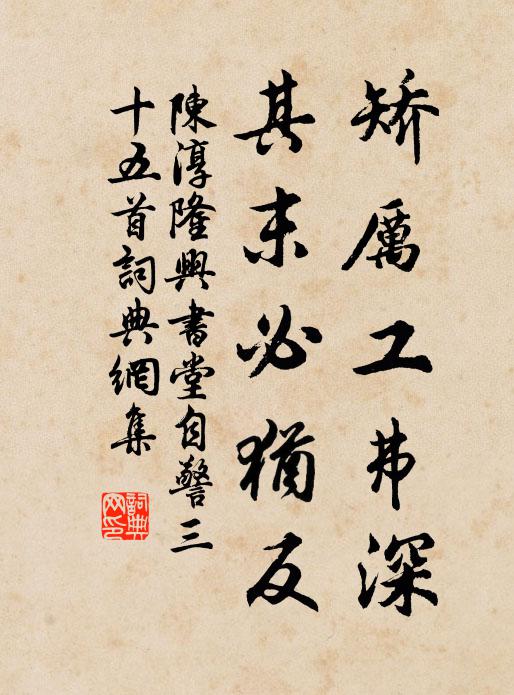 矫厲工弗深
其末必猶反
陳淳隆興書堂自警三
十五首詞典網集
詞典
网印